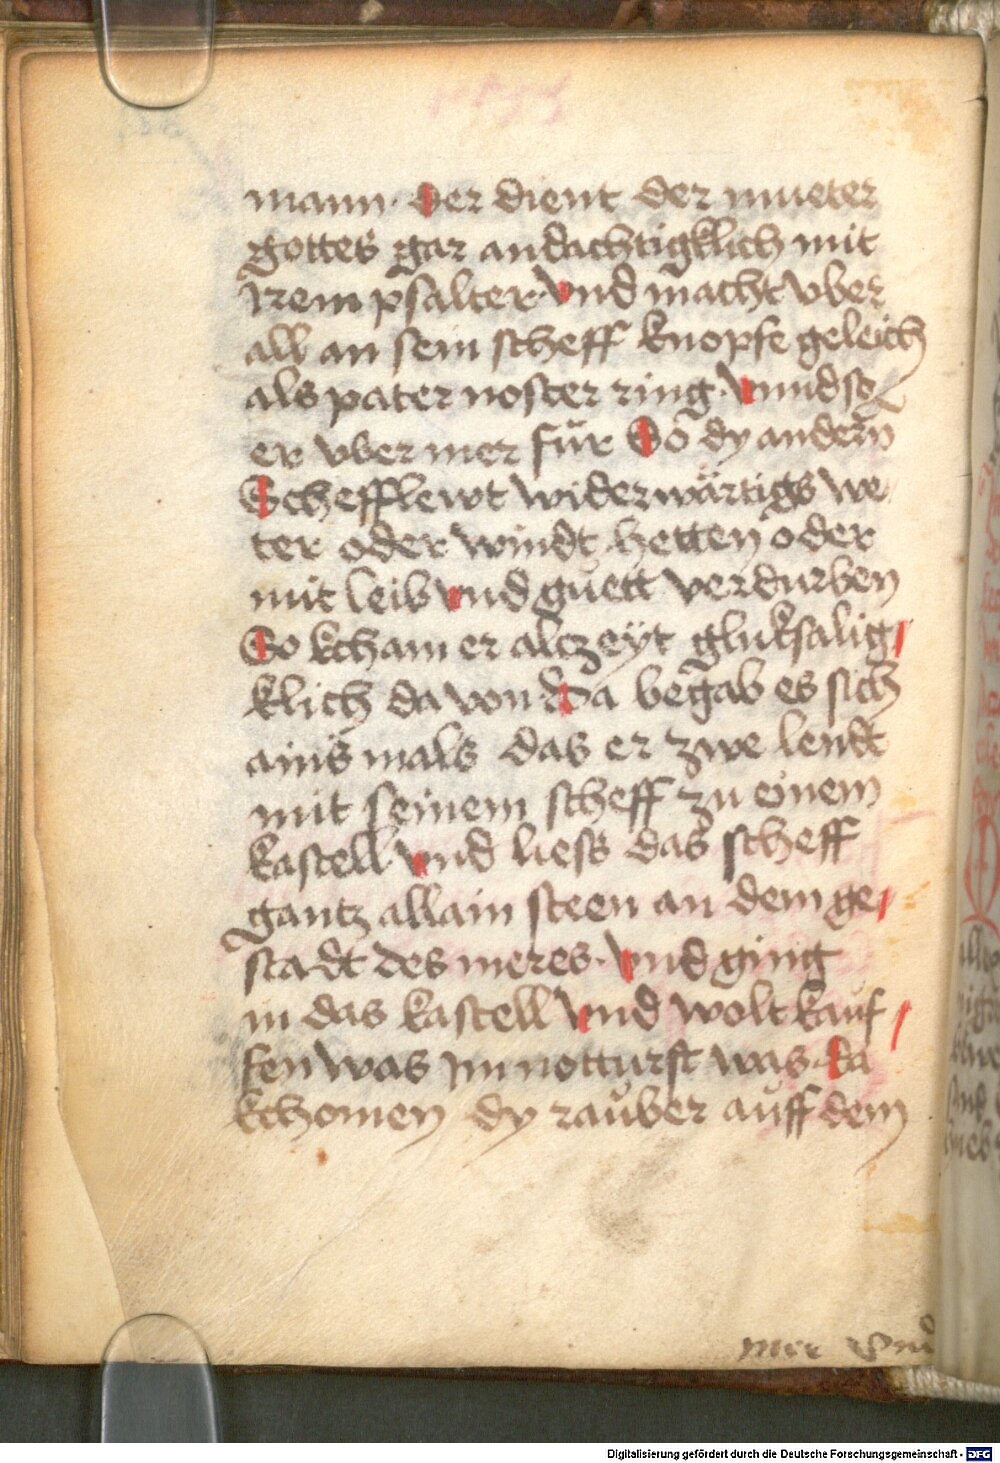 mann · Der dient der mueter
gottes gar andachtigklich mit
Irem psalter vnd macht vber
all an sein scheff knopfe geleich
als pater noster ring · Vnnd so
er vber mer für So dy andern
Schefflewt widerwärtigs we
ter oder windt hetten oder
mit leib vnd guett verdurben
So kcham er alczeyt gluksalig
klich da von Da begab es sich
ains mals das er zwe lendt
mit seinem scheff zu einem
kastell vnd liess das scheff
gantz allain steen an dem ge
stadt des meres · Vnd ging
in das kastell Vnd wolt kauf
fen was im notturft was · da
kchomen dy rauber auff dem
mer vnd
Digitalisierung gefördert durch die Deutsche Forschungsgemeinschaft - DFG